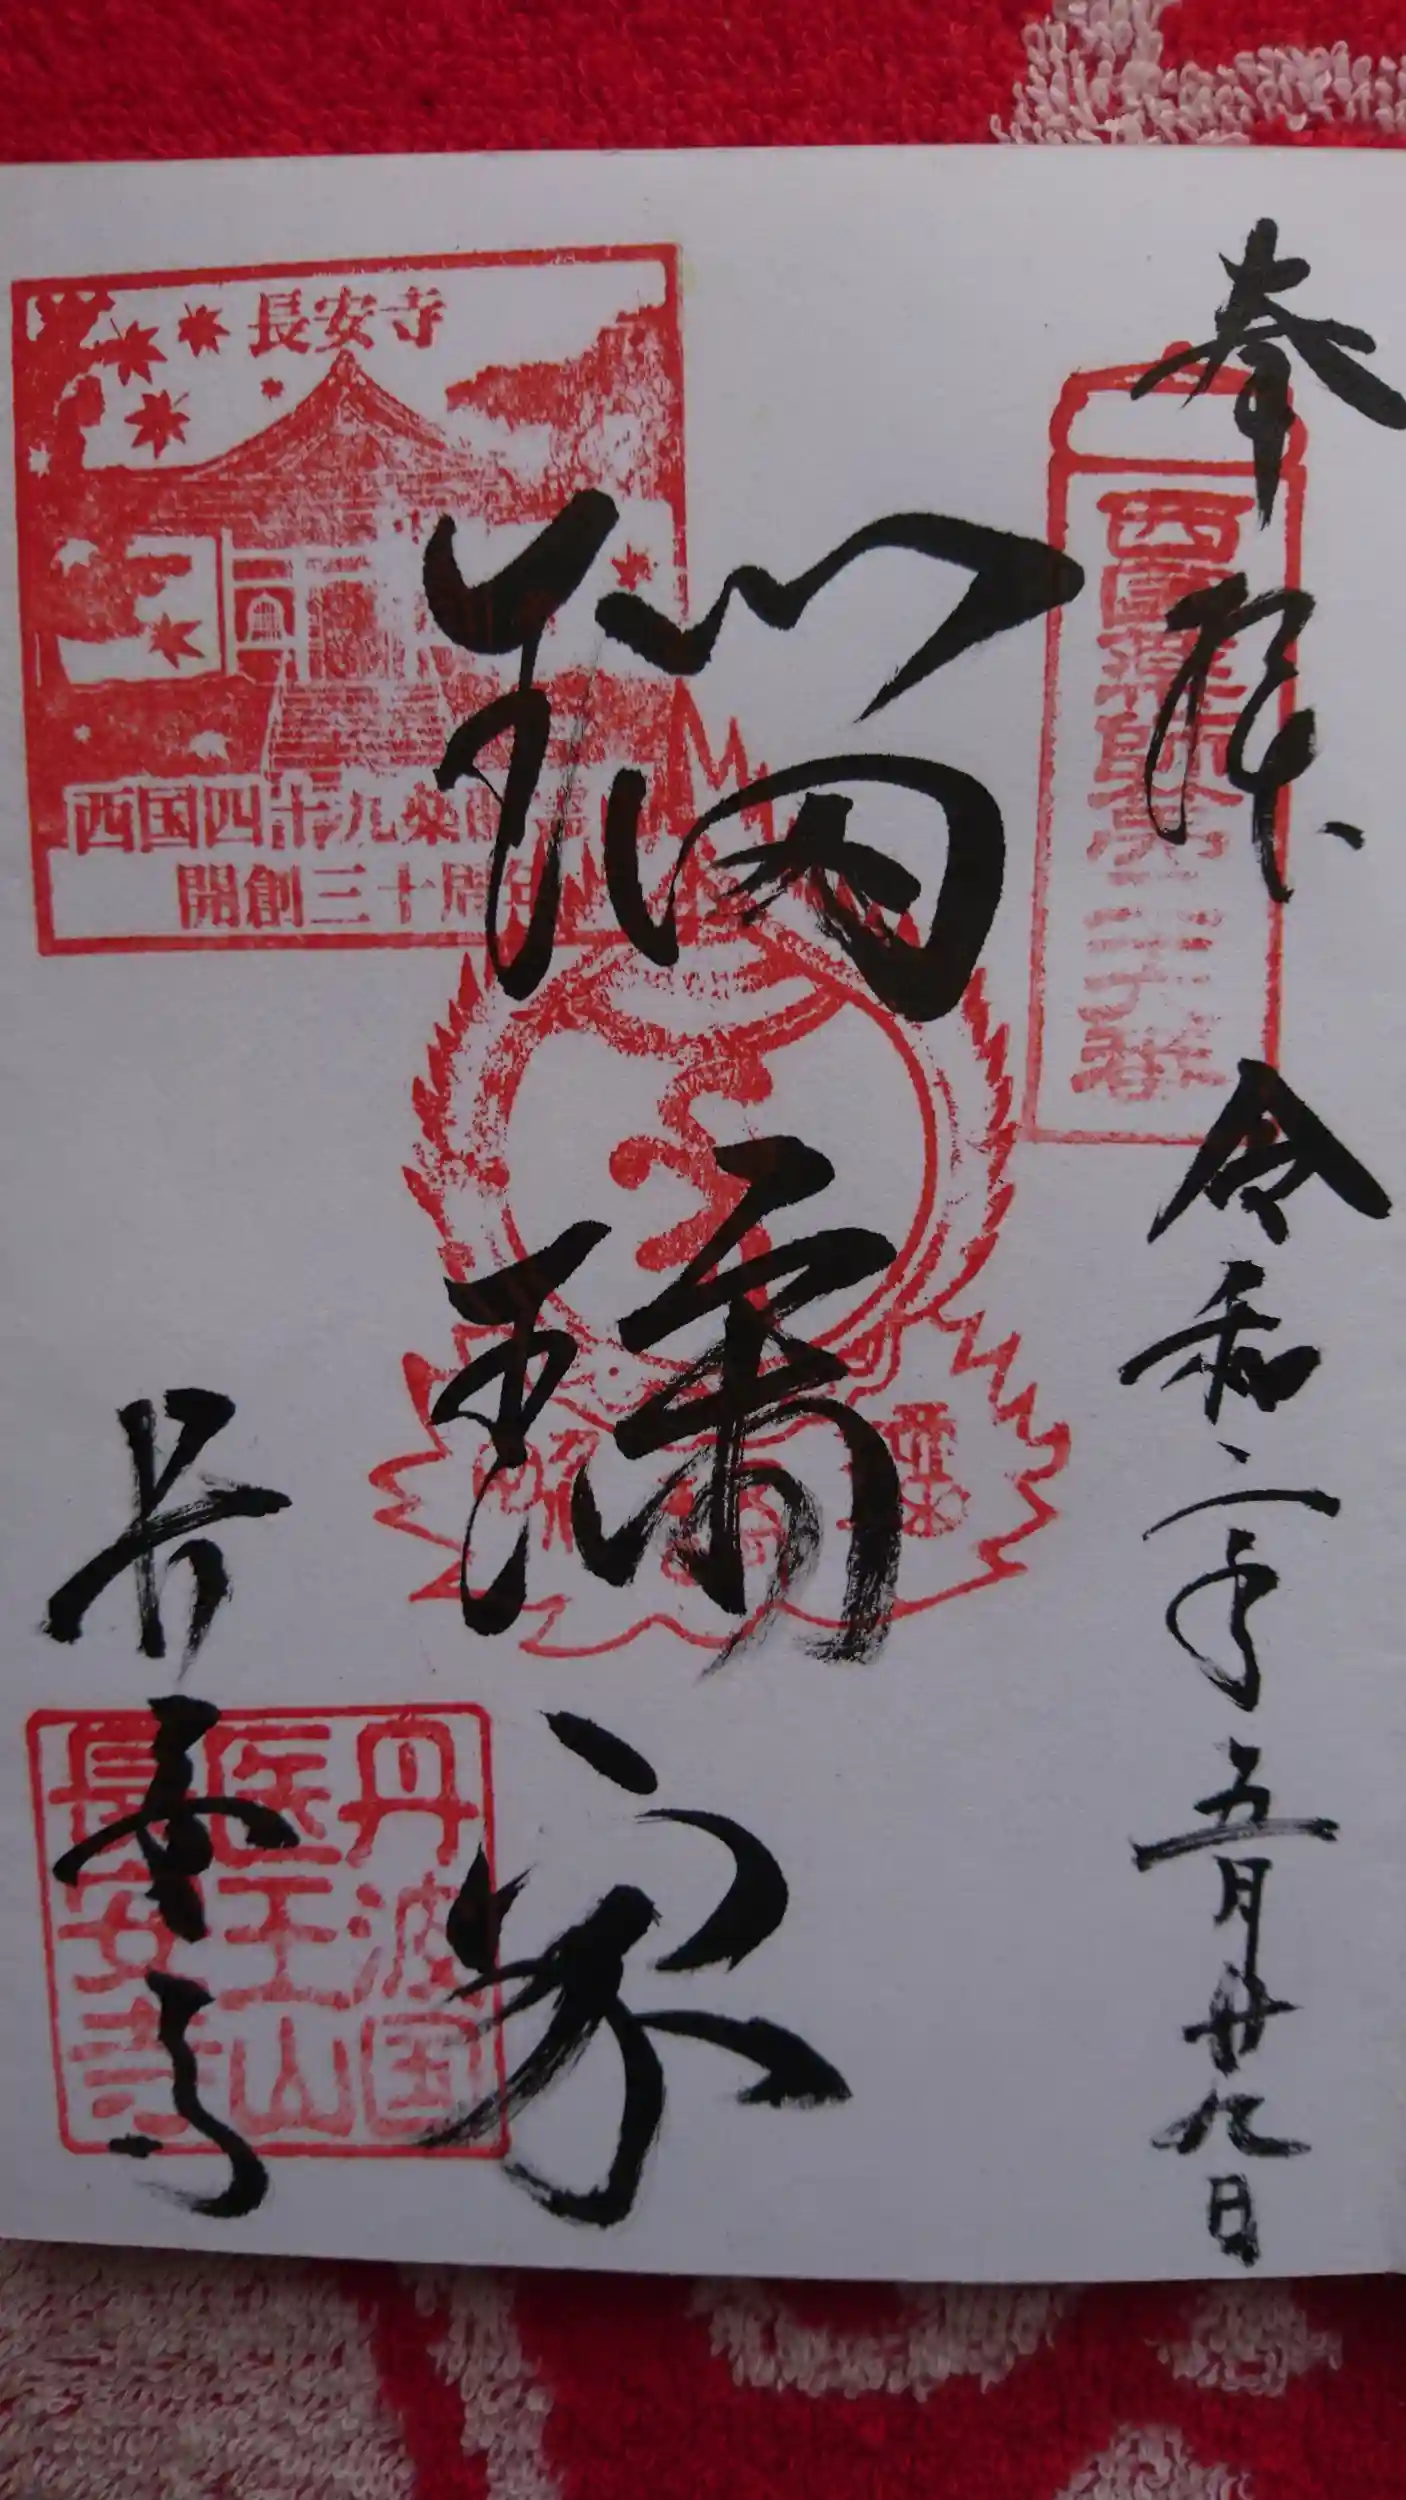 奉拝 令和二年五月廿九日
西國薬師第二十六番
瑠璃
長安寺
長安寺
西国四十九薬師霊
開創三十周年
丹波国
医王山
長安寺